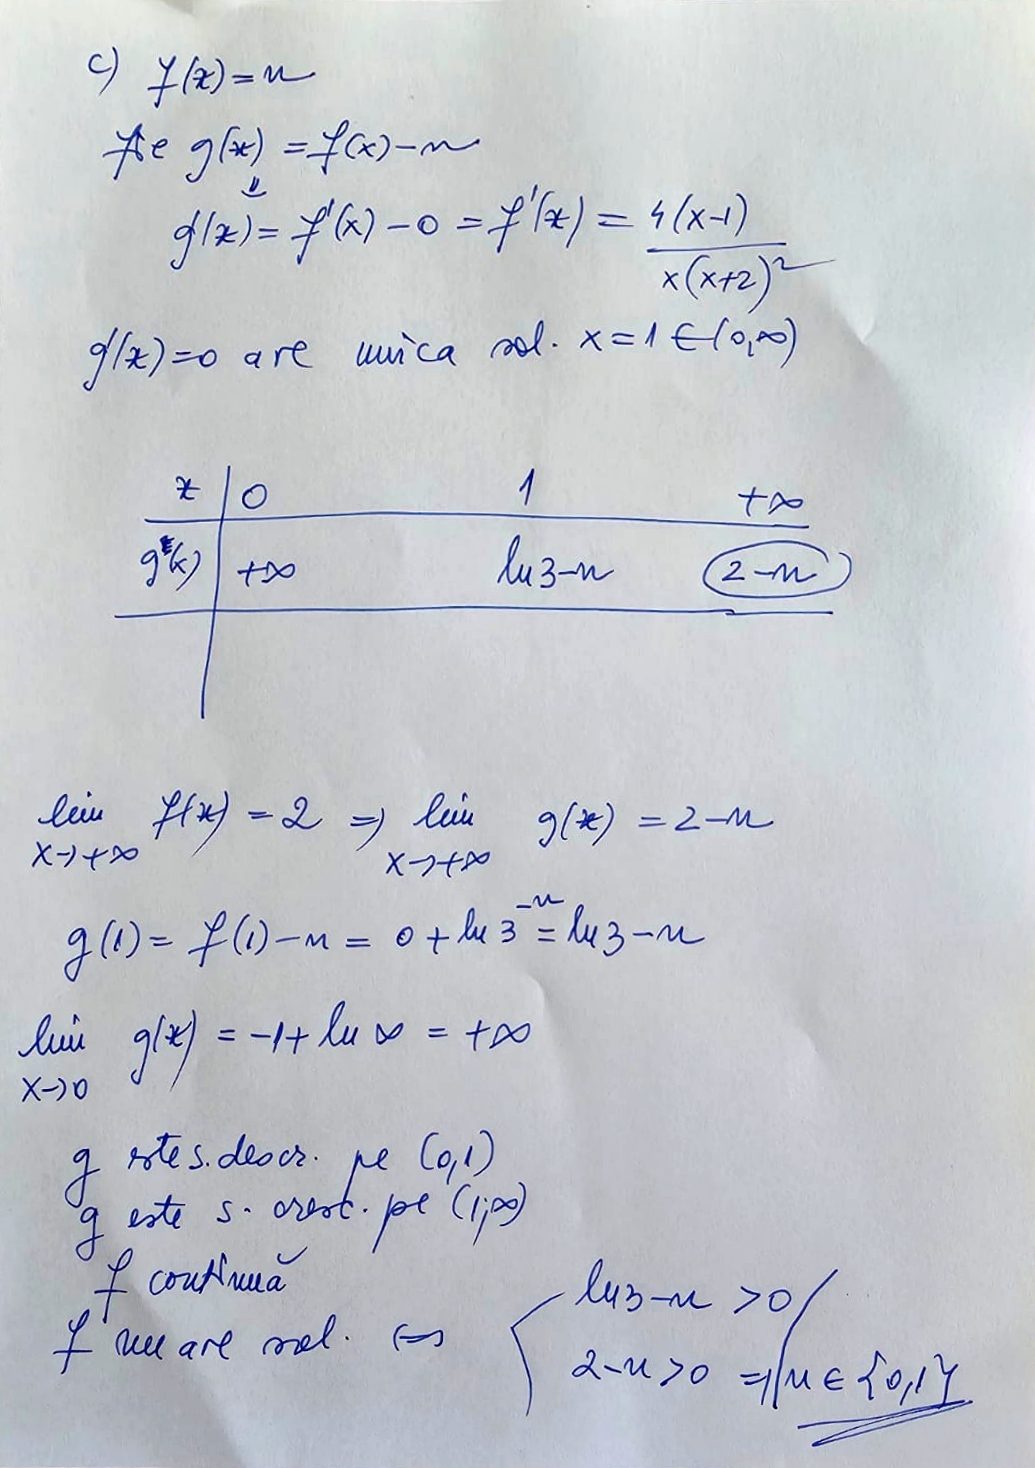 c) f(x)=n
Fie g(x) = f(x)-n
⇓
g'(x) = f'(x) - 0 = f'(x) = 4(x-1) / x(x+2)²
g'(x)=0 are unica sol. x=1 ∈ (0,∞)
x | 0 1 +∞
g(x) | +∞ ln3-n 2-n
lim x→+∞ f(x) = 2 ⇒ lim x→+∞ g(x) = 2-n
g(1) = f(1)-n = 0 + ln 3 -n = ln3-n
lim x→0 g(x) = -1 + ln ∞ = +∞
g este s. descr. pe (0,1)
g este s. cresc. pe (1;∞)
f continuă
f nu are sol. ⇔ { ln3-n > 0
2-n > 0 ⇒ n ∈ {0,1}